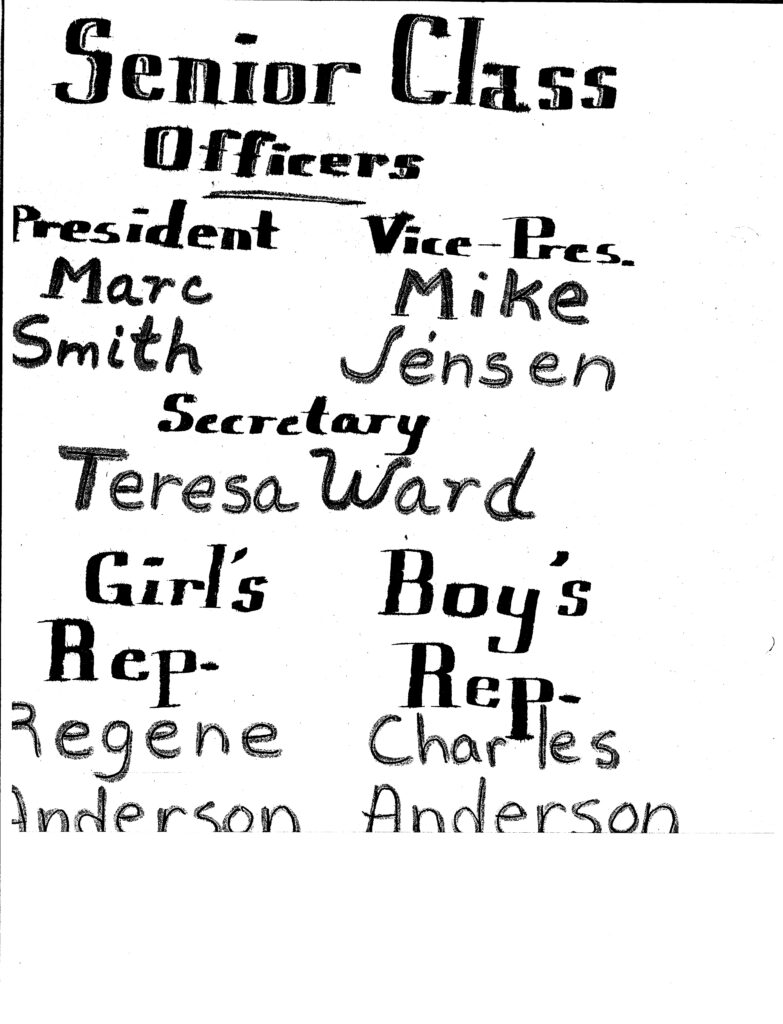 Senior Class
Officers
President
Marc
Smith
Vice-Pres.
Mike
Jensen
Secretary
Teresa Ward
Girl's
Rep-
Regene
Anderson
Boy's
Rep-
Charles
Anderson